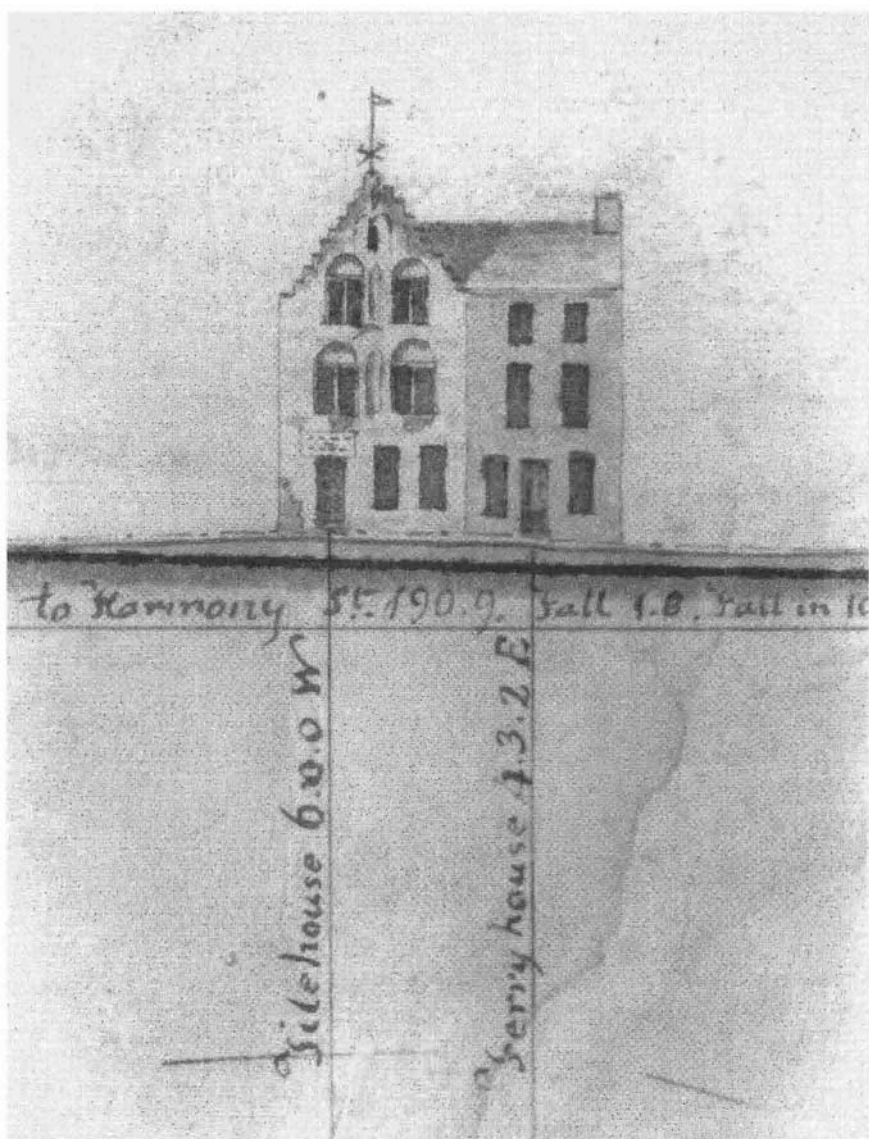 to Harmony St. 190.9. Fall 1.8. Fall in
Tilehouse 6.0.0 W
Ferry house 4.3.2 E